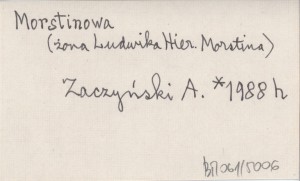 Morstinowa
(żona Ludwika Hier. Morstina)
Zaczyński A. *1988 h
BN061/5006